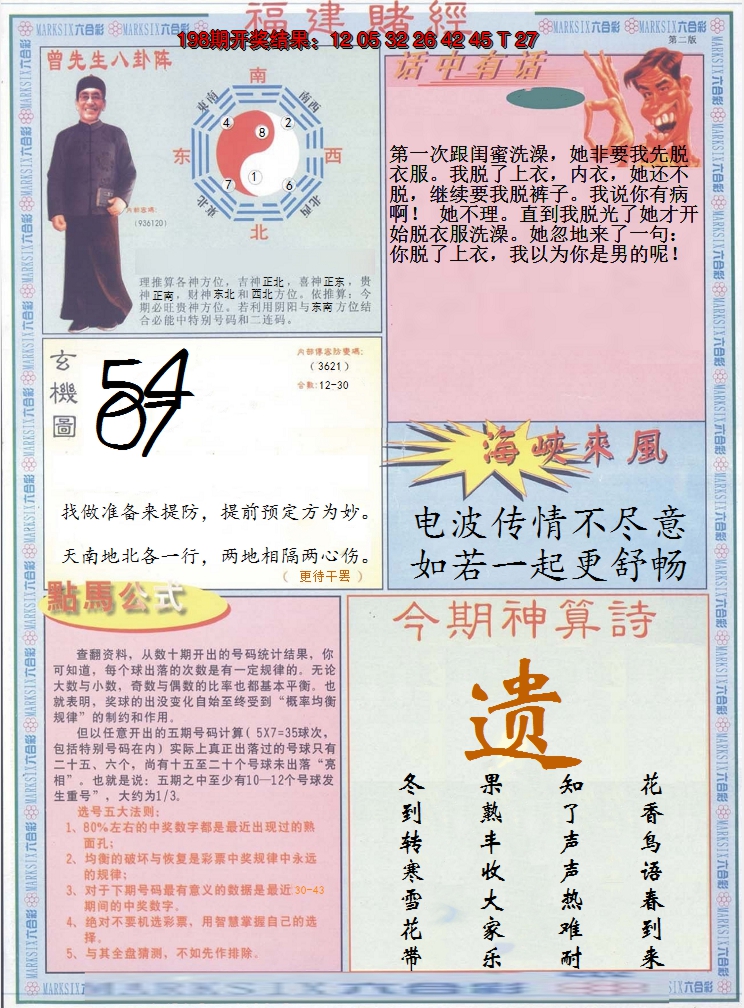 福建賭經
198期开奖结果：12 05 32 26 42 45 T 27
第二版
MARKSIX六合彩
曾先生八卦阵
南
东南
南西
4
8
2
东
西
7
1
6
东北
北西
北
内部密碼:
(936120)
理推算各神方位，吉神正北，喜神正东，贵
神正南，财神东北和西北方位。依推算：今
期必旺贵神方位。若利用阴阳与东南方位结
合必能中特别号码和二连码。
话中有话
第一次跟闺蜜洗澡，她非要我先脱
衣服。我脱了上衣，内衣，她还不
脱，继续要我脱裤子。我说你有病
啊！ 她不理。直到我脱光了她才开
始脱衣服洗澡。她忽地来了一句：
你脱了上衣，我以为你是男的呢！
玄機圖
54
07
(3621)
合数:12-30
找做准备来提防，提前预定方为妙。
天南地北各一行，两地相隔两心伤。
（ 更待干罢 ）
海峽來風
电波传情不尽意
如若一起更舒畅
點馬公式
查翻资料，从数十期开出的号码统计结果，你
可知道，每个球出落的次数是有一定规律的。无论
大数与小数，奇数与偶数的比率也都基本平衡。也
就表明，奖球的出没变化自始至终受到“概率均衡
规律”的制约和作用。
但以任意开出的五期号码计算( 5X7=35球次，
包括特别号码在内) 实际上真正出落过的号球只有
二十五、六个，尚有十五至二十个号球未出落“亮
相”。也就是说：五期之中至少有10—12个号球发
生重号”，大约为1/3。
选号五大法则：
1、80%左右的中奖数字都是最近出现过的熟
面孔；
2、均衡的破坏与恢复是彩票中奖规律中永远
的规律；
3、对于下期号码最有意义的数据是最近30-43
期间的中奖数字。
4、绝对不要机选彩票，用智慧掌握自己的选
择。
5、与其全盘猜测，不如先作排除。
今期神算詩
遗
花香鸟语春到来
知了声声热难耐
果熟丰收大家乐
冬到转寒雪花带